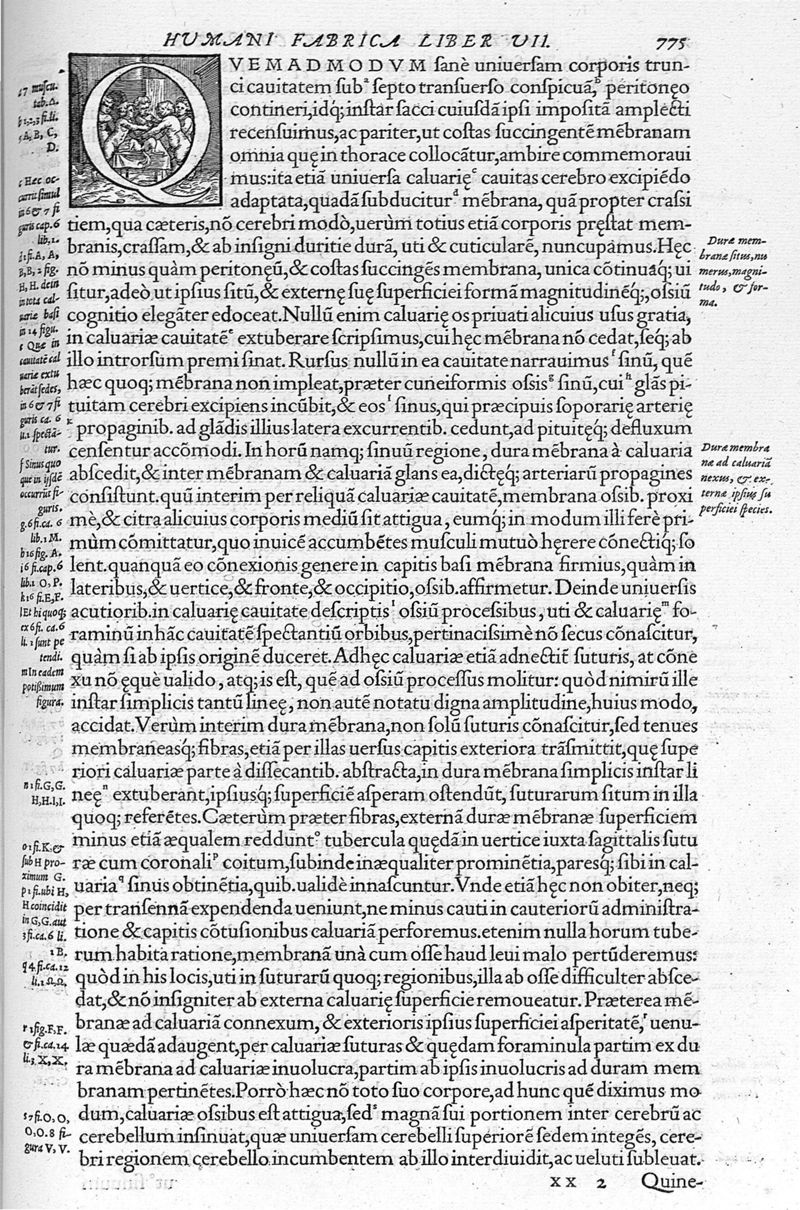 HUMANI FABRICA LIBER VII. 775
QVEMADMODVM sanè uniuersam corporis trun-
ci cauitatem subᵃ septo transuerso conspicuã,ᵇ peritonęo
contineri,idq́; instar sacci cuiusdã ipsi impositã amplecti
recensuimus,ac pariter,ut costas succingentẽ mẽbranam
omnia quę in thorace collocãtur,ambire commemoraui
mus:ita etiã uniuersa caluarięᶜ cauitas cerebro excipiẽdo
adaptata,quadã subduciturᵈ mẽbrana, quã propter crassi
tiem,qua cæteris,nõ cerebri modò,uerùm totius etiã corporis pręstat mem-
branis,crassam,& ab insigni duritie durã, uti & cuticularẽ, nuncupamus.Hęc
nõ minus quàm peritonęũ,& costas succingẽs membrana, unica cõtinuaq́; ui
situr,adeò ut ipsius sitũ,& externę suę superficiei formã magnitudinẽq́;,ossiũ
cognitio elegãter edoceat.Nullũ enim caluarię os priuati alicuius usus gratia,
in caluariæ cauitatẽᵉ extuberare scripsimus,cui hęc mẽbrana nõ cedat,seq́; ab
illo introrsum premi sinat. Rursus nullũ in ea cauitate narrauimusᶠ sinũ, quẽ
hæc quoq; mẽbrana non impleat,præter cuneiformis ossisᵍ sinũ,cuiʰ glãs pi-
tuitam cerebri excipiens incũbit,& eosⁱ sinus,qui præcipuis soporarię arterię
ᵏ propaginib. ad glãdis illius latera excurrentib. cedunt,ad pituitęq́; defluxum
censentur accõmodi. In horũ namq; sinuũ regione, dura mẽbrana à caluaria
abscedit,& inter mẽbranam & caluariã glans ea,dictęq́; arteriarũ propagines
cõsistunt.quũ interim per reliquã caluariæ cauitatẽ,membrana ossib. proxi
mè,& citra alicuius corporis mediũ sit attigua, eumq́; in modum illi ferè pri-
mùm cõmittatur,quo inuicẽ accumbẽtes musculi mutuò hęrere cõnectiq́; so
lent.quanquã eo cõnexionis genere in capitis basi mẽbrana firmius,quàm in
lateribus,& uertice,& fronte,& occipitio,ossib.affirmetur. Deinde uniuersis
acutiorib.in caluarię cauitate descriptisˡ ossiũ processibus, uti & caluarięᵐ fo-
raminũ in hãc cauitatẽ spectantiũ orbibus,pertinacissimè nõ secus cõnascitur,
quàm si ab ipsis originẽ duceret.Adhęc caluariæ etiã adnectit̃ suturis, at cõne
xu nõ ęquè ualido, atq; is est, quẽ ad ossiũ processus molitur: quòd nimirũ ille
instar simplicis tantũ lineę, non autẽ notatu digna amplitudine,huius modo,
accidat.Verùm interim dura mẽbrana,non solũ suturis cõnascitur,sed tenues
membraneasq́; fibras,etiã per illas uersus capitis exteriora trãsmittit,quę supe
riori caluariæ parte à dissecantib. abstracta,in dura mẽbrana simplicis instar li
neęⁿ extuberant,ipsiusq́; superficiẽ asperam ostendũt, suturarum situm in illa
quoq; referẽtes.Cæterùm præter fibras,externã duræ mẽbranæ superficiem
minus etiã æqualem redduntᵒ tubercula quędã in uertice iuxta sagittalis sutu
ræ cum coronaliᵖ coitum,subinde inæqualiter prominẽtia,paresq́; sibi in cal-
uariaᑫ sinus obtinẽtia,quib.ualidè innascuntur.Vnde etiã hęc non obiter,neq;
per transennã expendenda ueniunt,ne minus cauti in cauteriorũ administra-
tione & capitis cõtusionibus caluariã perforemus.etenim nulla horum tube-
rum habita ratione,membranã unà cum osse haud leui malo pertũderemus:
quòd in his locis,uti in suturarũ quoq; regionibus,illa ab osse difficulter absce-
dat,& nõ insigniter ab externa caluarię superficie remoueatur. Præterea mẽ-
branæ ad caluariã connexum, & exterioris ipsius superficiei asperitatẽ,ʳ uenu-
læ quædã adaugent,per caluariæ suturas & quędam foraminula partim ex du
ra mẽbrana ad caluariæ inuolucra,partim ab ipsis inuolucris ad duram mem
branam pertinẽtes.Porrò hæc nõ toto suo corpore,ad hunc quẽ diximus mo
dum,caluariæ ossibus est attigua,sedˢ magnã sui portionem inter cerebrũ ac
cerebellum insinuat,quæ uniuersam cerebelli superiorẽ sedem integẽs, cere-
bri regionem cerebello incumbentem ab illo interdiuidit,ac ueluti subleuat.
XX 2 Quine-
a 7 muscu.
tab.Δ.
b 1,2,3 fi.li.
5 A, B, C,
D.
c Hæc oc-
currit simul
in 6 & 7 fi
guris cap.6
lib.1.
d 1 fi.A, A,
B,B, 2 fig.
H, H. dein
in tota cal-
uariæ basi
in 14 figu.
e Quæ in
cauitatẽ cal
uariæ extu
berãt sedes,
in 6 & 7 fi
guris ca. 6
li.1 spectã-
tur.
f Sinus quo
que in ijsdẽ
occurrũt fi-
guris.
g.6 fi.ca. 6
lib.1 M.
h 16 fig. A.
i 6 fi.cap.6
lib.1 O, P.
k 16 fi.E,F.
l Et hi quoq;
ex 6 fi. ca.6
li. 1 sunt pe
tendi.
m In eadem
potißimum
figura.
n 1 fi.G,G.
H,H.I,I.
o 1 fi.K.&
sub H pro-
ximum G.
p 1 fi.ubi H,
H coincidit
in G,G.aut
3 fi.ca.6 li.
1 B.
q 4.fi.ca.12
li.1 Ω,Ω.
r 1 fig.F,F.
& fi.ca.14
li.3, X,X.
s 7 fi.O, O,
O,O. 8 fi-
gura V, V.
Duræ mem-
branæ situs,nu
merus,magni-
tudo, & for-
ma.
Duræ membra
næ ad caluariã
nexus, & ex-
ternæ ipsius su
perficiei species.